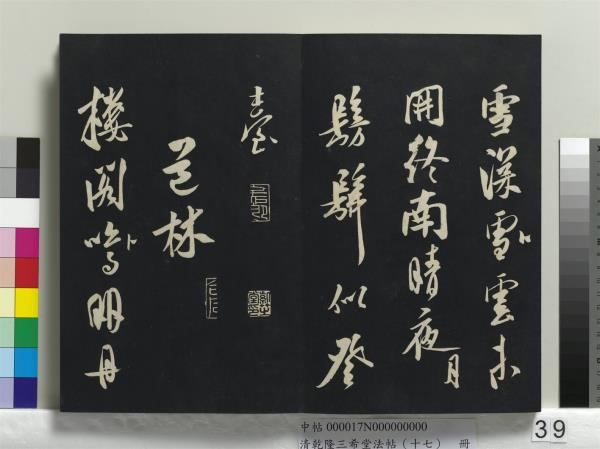 雪深雪卜雲未
開終南晴夜月
髣髴似登
臺
林
樓閣鳴卜明丹
中帖 000017N000000000
清乾隆三希堂法帖(十七) 冊
39